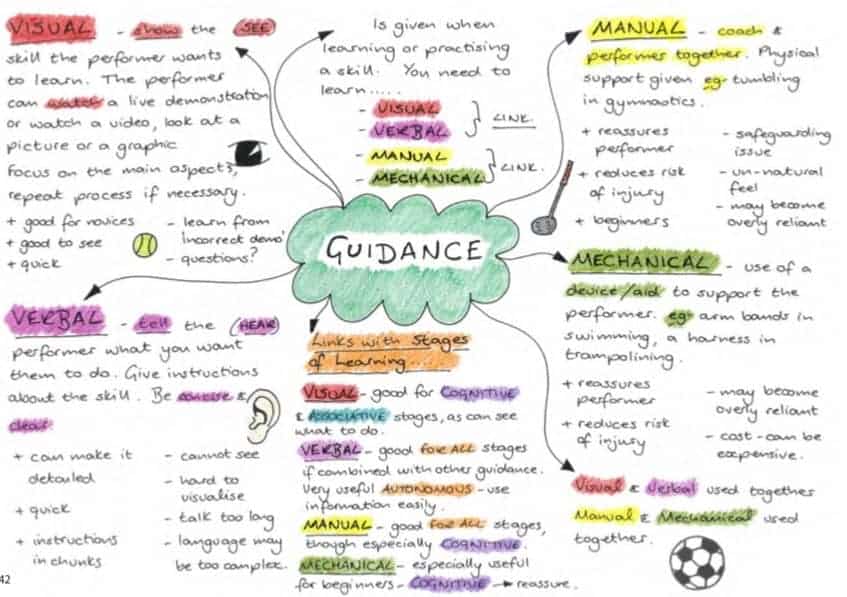 VISUAL - show the (SEE)
skill the performer wants
to learn. The performer
can watch a live demonstration
or watch a video, look at a
picture or a graphic
Focus on the main aspects,
repeat process if necessary.
+ good for novices
+ good to see
+ quick
- learn from
incorrect demo'
- questions?
Is given when
learning or practising
a skill. You need to
learn.....
- VISUAL
- VERBAL
LINK.
- MANUAL
- MECHANICAL
LINK.
MANUAL - coach &
performer together. Physical
support given eg- tumbling
in gymnastics.
+ reassures
performer
+ reduces risk
of injury
+ beginners
- safeguarding
issue
- un-natural
feel
- may become
overly reliant
GUIDANCE
MECHANICAL - use of a
device/aid to support the
performer. eg- arm bands in
swimming, a harness in
trampolining.
+ reassures
performer
+ reduces risk
of injury
- may become
overly reliant
- cost - can be
expensive.
VERBAL - tell the (HEAR)
performer what you want
them to do. Give instructions
about the skill. Be concise &
clear
+ can make it
detailed
+ quick
+ instructions
in chunks
- cannot see
- hard to
visualise
- talk too long
- language may
be too complex.
Links with Stages
of Learning....
VISUAL - good for COGNITIVE
& ASSOCIATIVE stages, as can see
what to do.
VERBAL - good FOR ALL stages
if combined with other guidance.
Very useful AUTONOMOUS - use
information easily.
MANUAL - good FOR ALL stages,
though especially COGNITIVE.
MECHANICAL - especially useful
for beginners - COGNITIVE → reassure.
Visual & Verbal used together
Manual & Mechanical used
together.
42